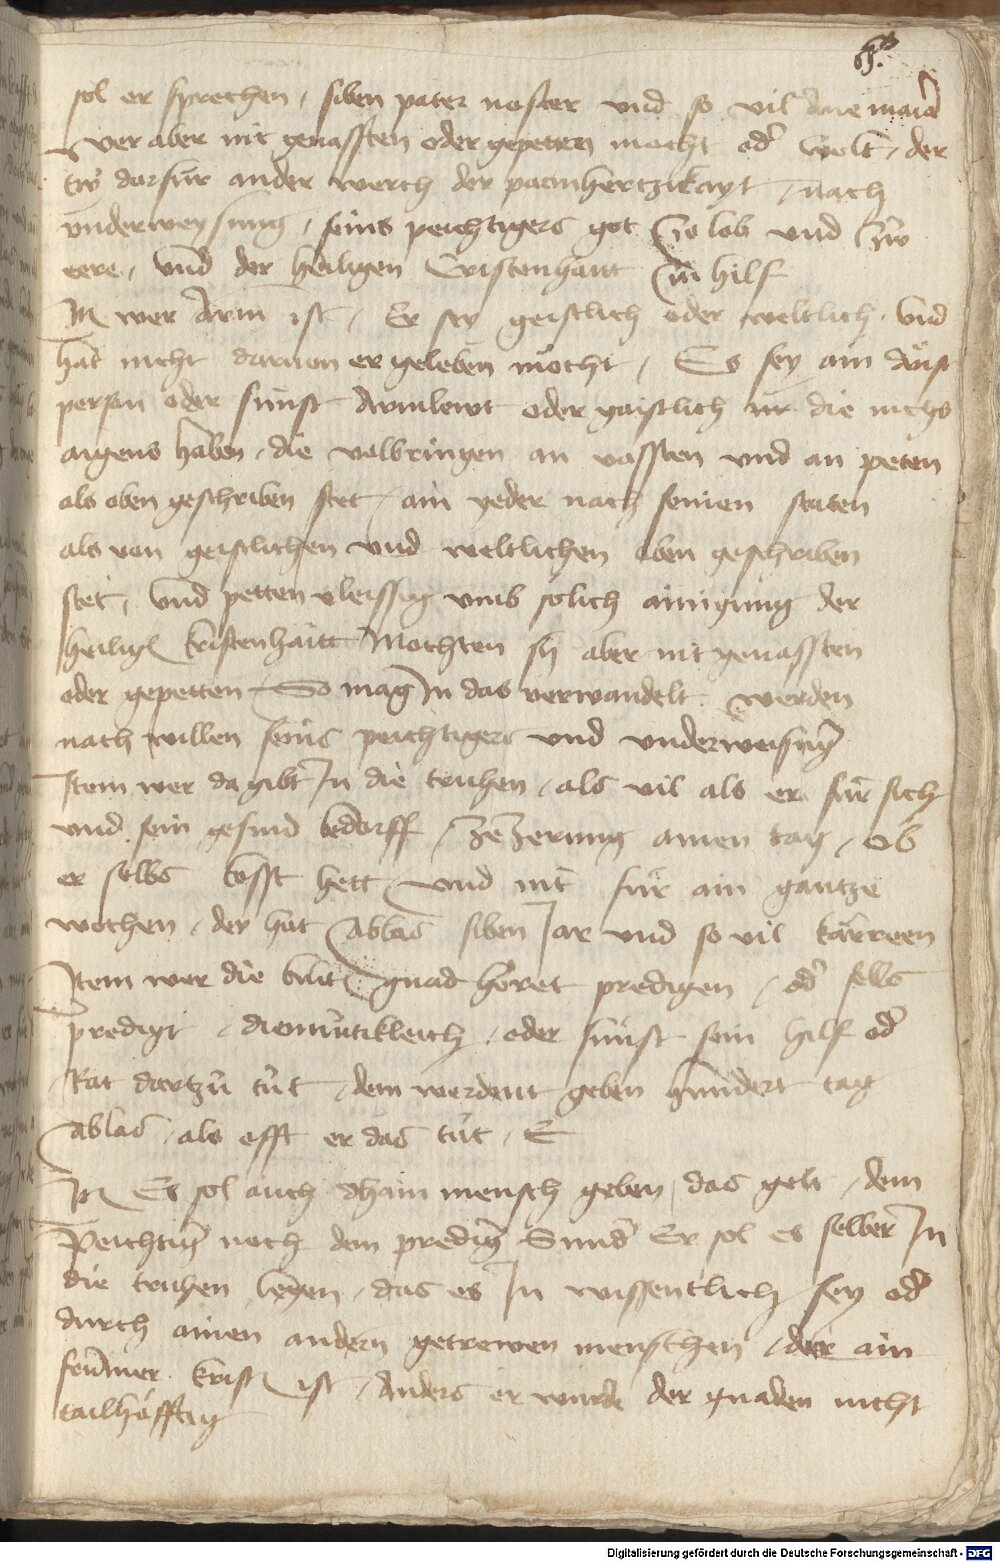 sol er sprechen / siben pater noster vnd so vil Aue maria
Wer aber nit geuassten oder gepetten mocht od' wolt / der
tw darfur ander werch der parmhertzikayt / nach
vnderweysung / seins peichtigers got zw lob vnd zw
eere / vnd der heiligen Cristenhait zu hilf
Jt wer Arm ist / Er sey geistlich oder weltlich / vnd
hat nicht dauon er geleben mocht / Es sey ain
person oder sunst Armlewt oder gaistlich die nichs
aigens haben / die volbringen an vassten vnd an peten
als oben geschriben stet / ain yeder nach seinen staten
als von geistlichen vnd weltlichen oben geschriben
stet / vnd petten vleissig vmb solich ainigung der
heilign kristenhaitt Mochten sy aber nit geuassten
oder gepetten So mag In das verwandelt werden
nach willen seins peichtigers vnd vnderweisung
Item wer da gibt In die truhen / als vil als er fur sich
vnd sein gesind bedorff / ze zerung ainen tag / Ob
er selbs kosst hett / vnd nit fur ain gantze
wochen / der hat Ablas siben Jar vnd so vil karreen
Item wer die gnad horet predigen / od' selbs
predigt / diemutikleich / oder sunst sein hilf od'
Rat dartzu tut / dem werdent geben hundert tag
Ablas / als offt er das tut /
Jt Es sol auch chain mensch geben das gelt / dem
Peichtig' noch dem predig' Sund' Er sol es selber In
die truhen legen / das es In wissentlich sey od'
durch ainen andern getrewen menschen / der ain
frumer krist ist / Anders er wurde der gnaden nicht
tailhafftig
Digitalisierung gefördert durch die Deutsche Forschungsgemeinschaft - DFG